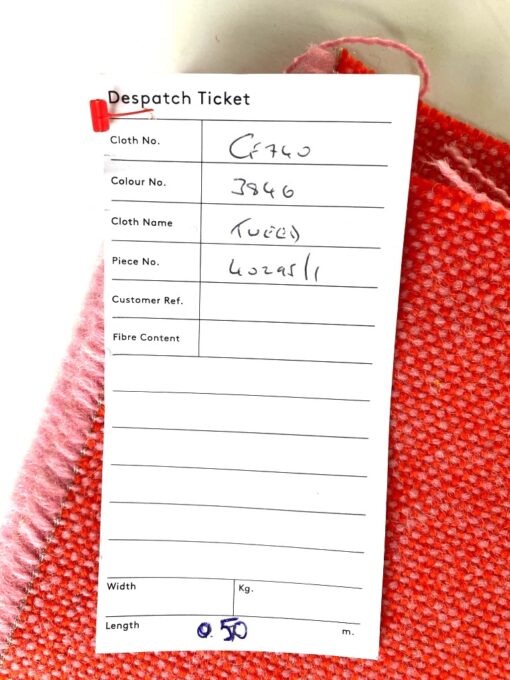 Despatch Ticket
Cloth No. CF740
Colour No. 3846
Cloth Name TWEED
Piece No. 40295/1
Customer Ref.
Fibre Content
Width Kg.
Length 0.50 m.